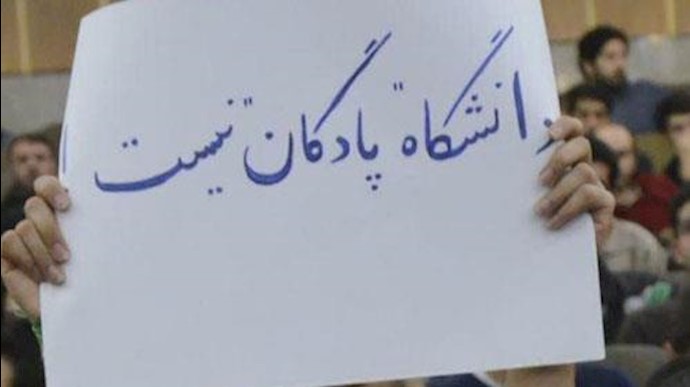 دانشگاه "پادگان" نیست